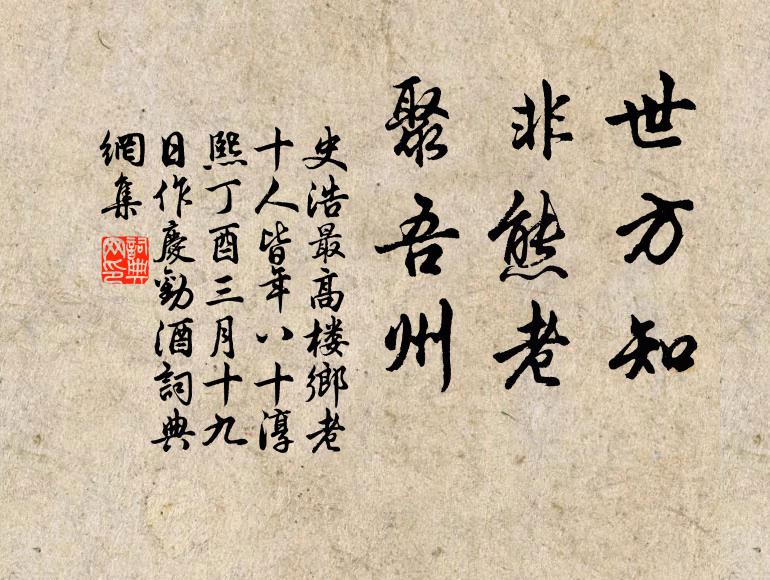 世方知
非熊老
聚吾州
史浩最高楼鄉老
十人皆年八十淳
熙丁酉三月十九
日作慶勸酒詞典
網集
詞典網印